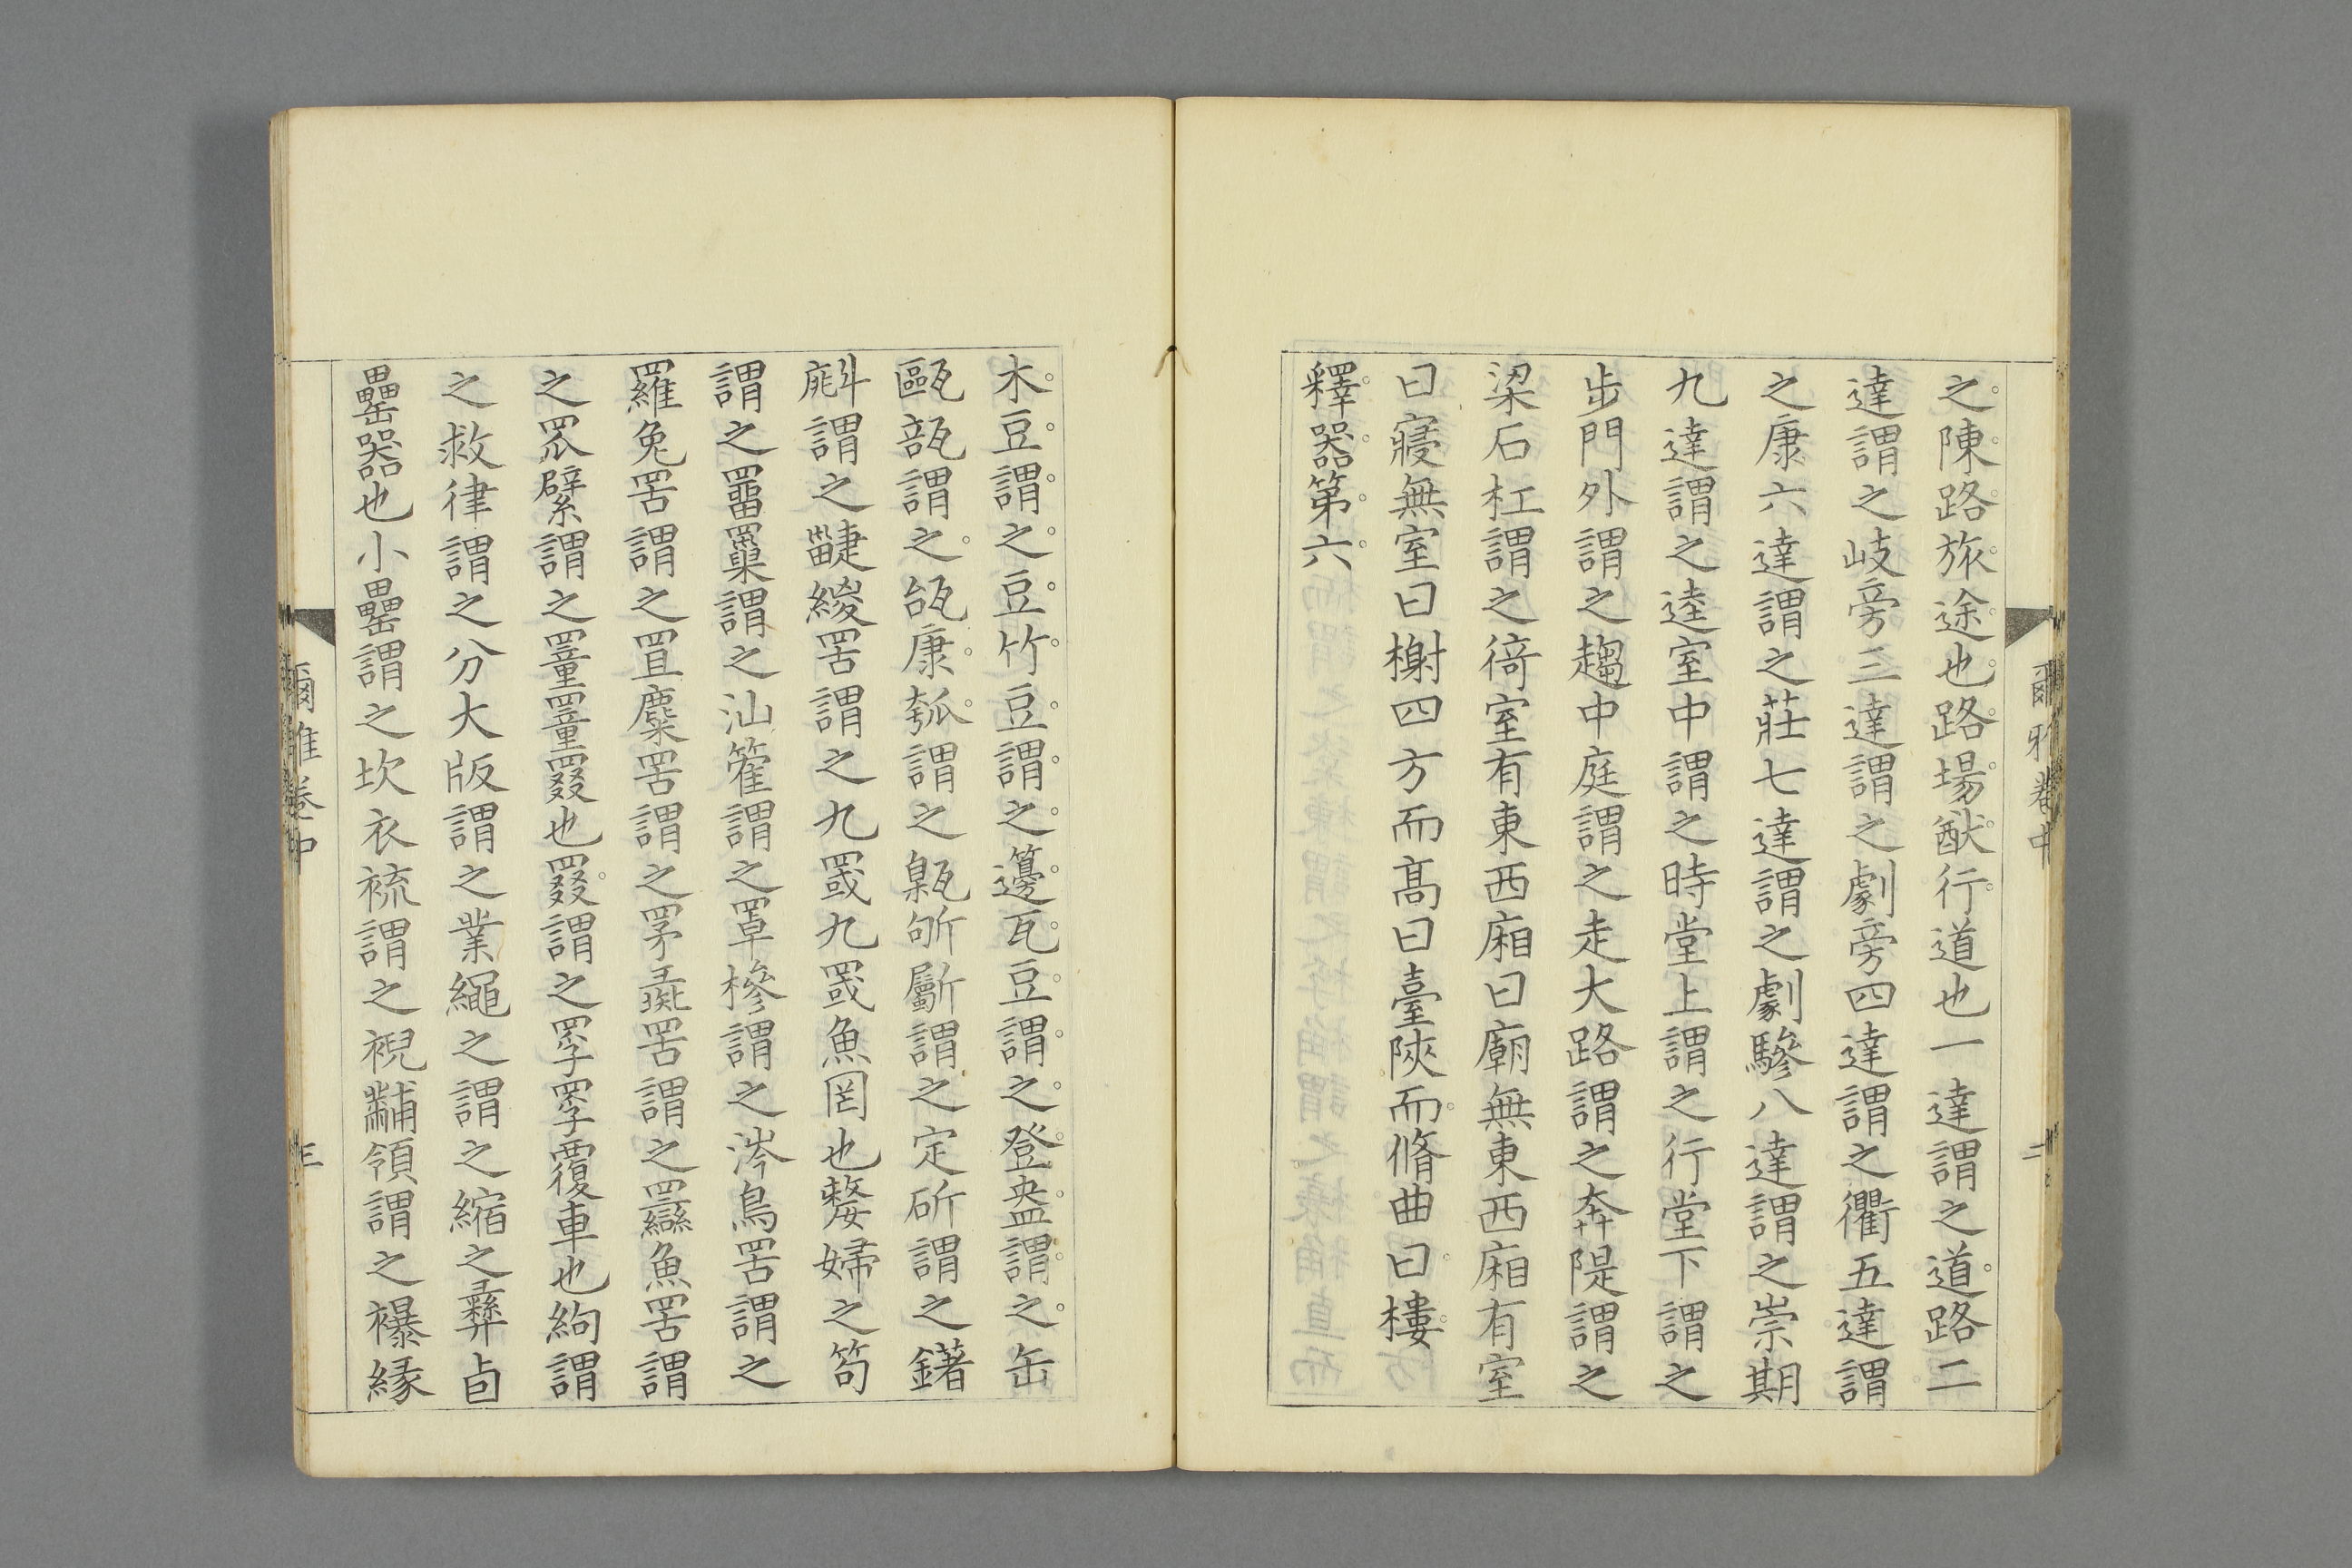 爾雅卷中
二
之陳路旅途也路場猷行道也一達謂之道路二
達謂之岐旁三達謂之劇旁四達謂之衢五達謂
之康六達謂之莊七達謂之劇驂八達謂之崇期
九達謂之逵室中謂之時堂上謂之行堂下謂之
步門外謂之趨中庭謂之走大路謂之奔隄謂之
梁石杠謂之徛室有東西廂曰廟無東西廂有室
曰寢無室曰榭四方而髙曰臺陝而脩曲曰樓
釋器第六
木豆謂之豆竹豆謂之籩瓦豆謂之登盎謂之缶
甌瓿謂之瓵康瓠謂之甈斪斸謂之定斫謂之鐯
㪵謂之疀緵罟謂之九罭九罭魚罔也嫠婦之笱
謂之罶罺謂之汕篧謂之罩槮謂之涔鳥罟謂之
羅兔罟謂之罝麋罟謂之罞彘罟謂之羉魚罟謂
之罛繴謂之罿罿罬也罬謂之罦罦覆車也絇謂
之救律謂之分大版謂之業繩之謂之縮之彝卣
罍器也小罍謂之坎衣裗謂之祝黼領謂之襮緣
爾雅卷中
三